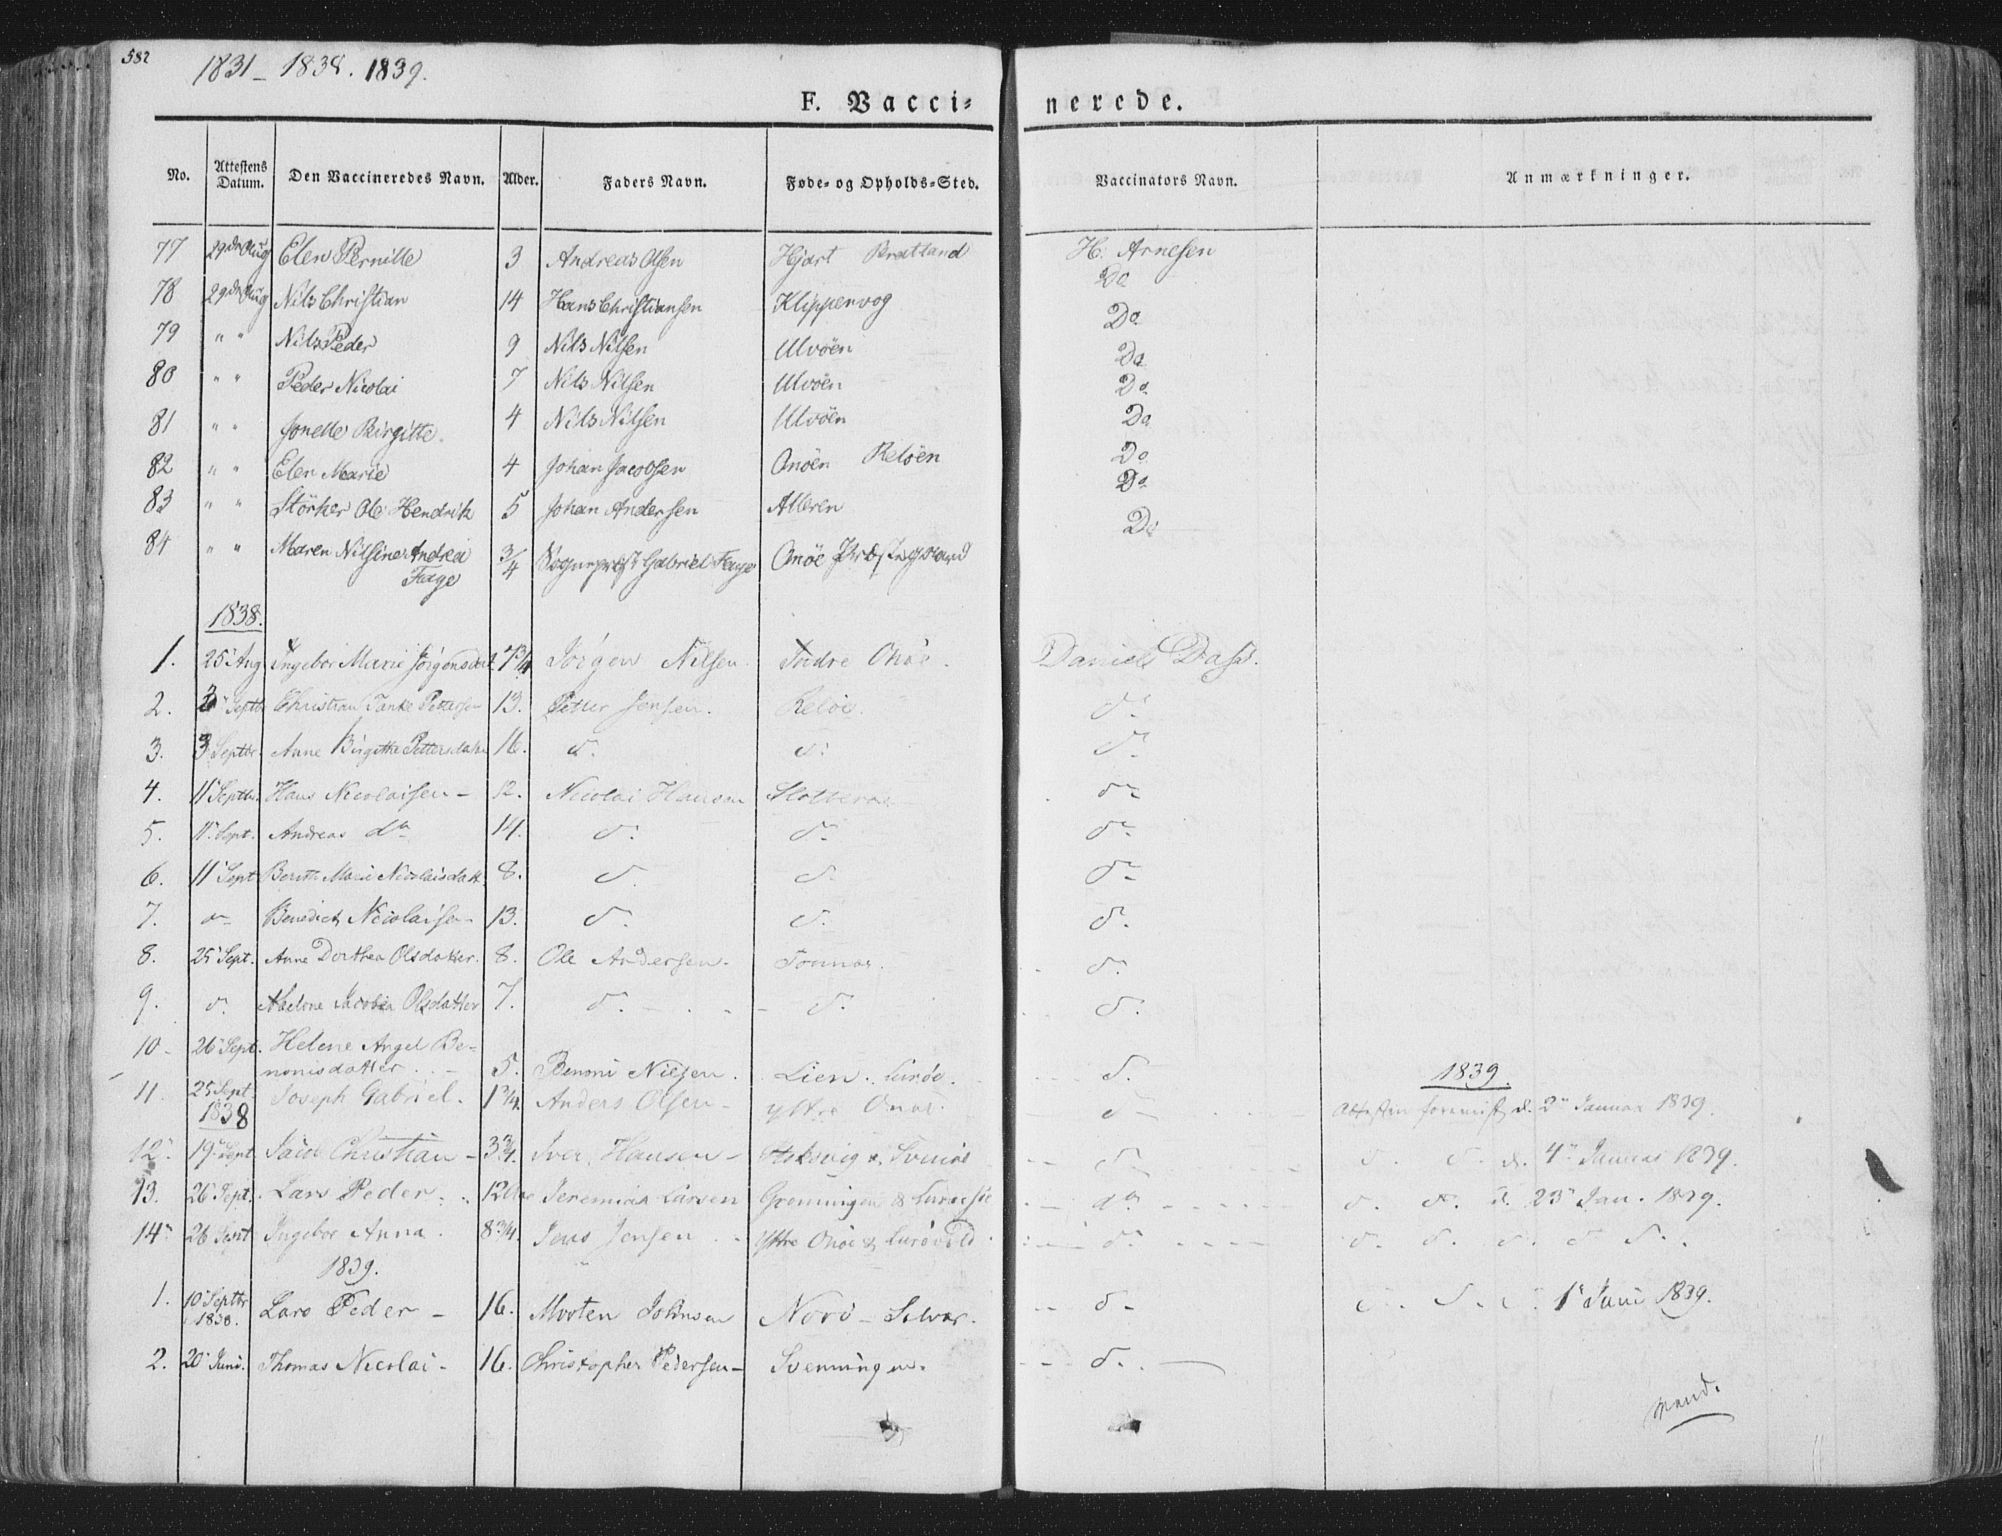 582
1831 - 1838. 1839.
F. Vacci- nerede.
No. Attestens Datum. Den Vaccineredes Navn. Alder. Faders Navn. Føde- og Opholds-Sted. Vaccinators Navn. Anmærkninger.
77 29de Aug Elen Pernille 3 Andreas Olsen Hjart Bratland H. Arnesen
78 29de Aug Nils Christian 14 Hans Christiansen Klippervog Do
79 " " Nils Peder 9 Nils Nilsen Ulvöen Do
80 " " Peder Nicolai 7 Nils Nilsen Ulvöen Do
81 " " Jonelle Birgitte. 4 Nils Nilsen Ulvöen Do
82 " " Elen Marie 4 Johan Jacobsen Onöen Relöen Do
83 " " Störker Ole Hendrik 5 Johan Andersen Alleren Do
84 " " Maren Nilsine Andrea 3/4 Sognepræst Gabriel Fage Onöe Præstegaard Do
Fage
1838.
1. 25 Aug Ingebor Marie Jörgensdat 7 3/4 Jörgen Nilsen. Indre Onöe. Daniel Dass.
2. 3 Septbr Christian Tanke Pettersen 13. Petter Jensen. Relöe. do
3. 3 Septbr. Anne Birgithe Pettersdatter 16. do. do. do
4. 11 Septbr. Hans Nicolaisen - 12. Nicolai Hansen do
5. 11 Sept. Andreas do 14. do. do. do.
6. 11 Sept Berith Marie Nicolaisdatt. 8. do. do. do
7. do Benedict Nicolaisen - 13. do. do. do.
8. 25 Sept. Anne Dorthea Olsdatter. 8. Ole Andersen. Sonnar. do.
9. do Jacobia Olsdatter 7. do. do. do.
10 - 26 Sept. Helene Angel Be-
nonisdatter. - 5. Benoni Nielsen. Lien. Luröe. do. 1839.
11. 25 Sept. Joseph Gabriel. 1 3/4. Anders Olsen - Yttre Onöe. do Attesten foreviist d. 2 Januar 1839.
1838
12. 19 Sept Jacob Christian - 3 3/4. Iver Hansen - Stokvig & Svinöe do do. do. d. 4 Januar 1839.
13. 26 Sept. Lars Peder. 12 Jeremias Larsen Grønningen & do do. do. d. 23 Jan. 1839.
14 26 Sept Ingebor Anna. 8 3/4. Jens Jensen Yttre Onöe & do. do. do. do. do do.
1839.
1. 10 Septbr 1838. Lars Peder - 16. Morten Johnsen Norö - Selvær. do - do. do. do. 1 Juni 1839.
2. 20 Juni. Thomas Nicolai - 16. Christopher Pedersen - Svenningen. do. -
vend.